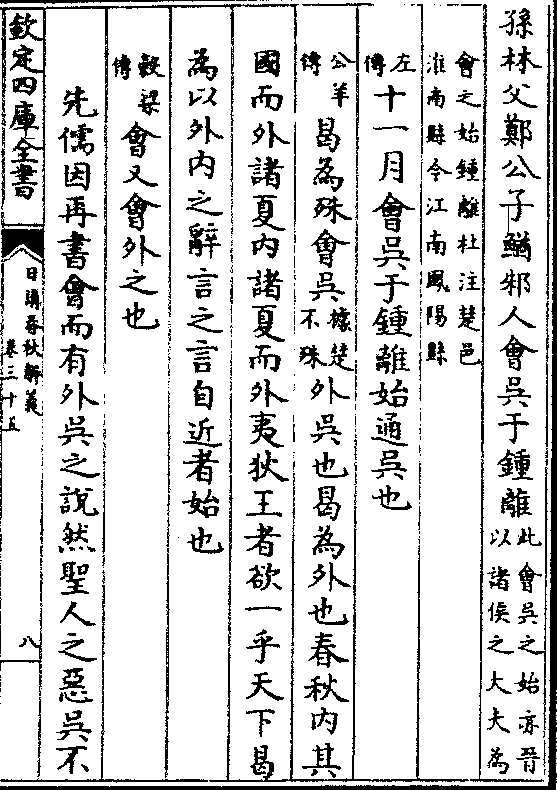 孫林父鄭公子鰌邾人會吳于鍾離此會吳之始亦晉以諸侯之大夫為
會之始鍾離杜注楚邑淮南縣今江南鳳陽縣
左傳十一月會吳于鍾離始通吳也
公羊傳曷為殊會吳據楚不殊外吳也曷為外也春秋內其
國而外諸夏內諸夏而外夷狄王者欲一乎天下曷
為以外內之辭言之言自近者始也
穀梁傳會又會外之也
先儒因再書會而有外吳之說然聖人之惡吳不
欽定四庫全書
日講春秋解義
卷三十五
八